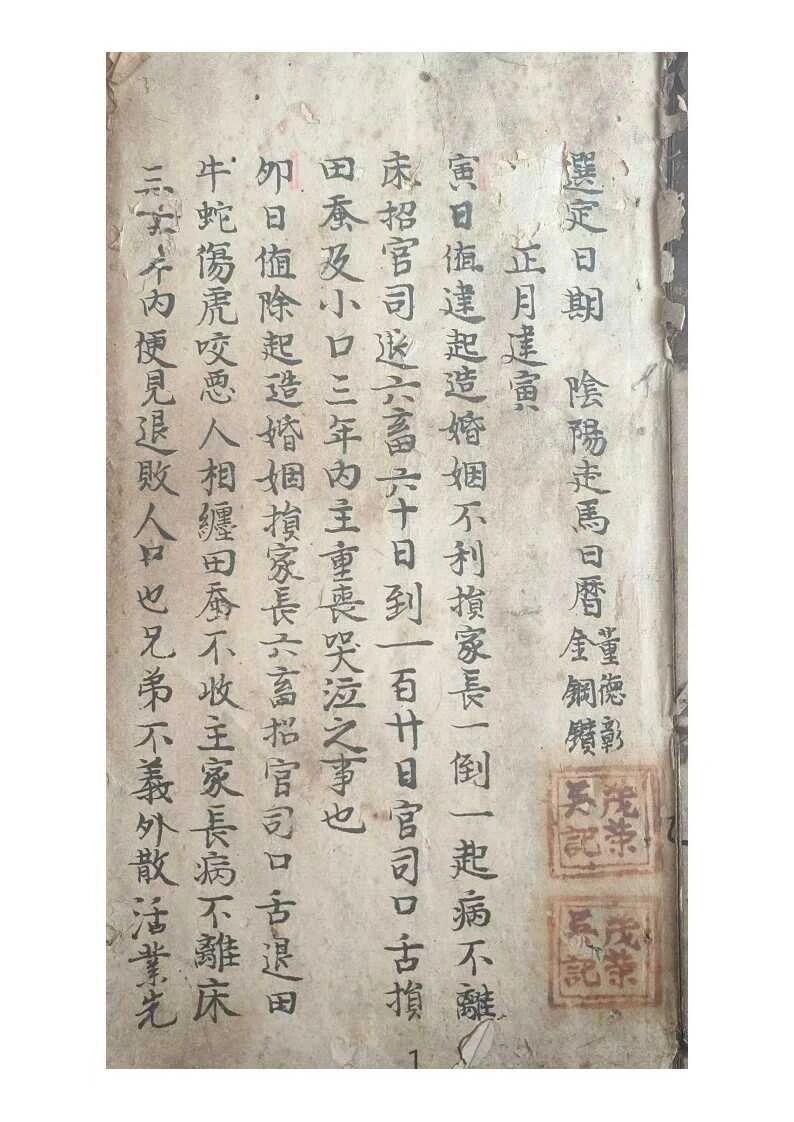 選定日期　陰陽走馬日曆
董德彰
金鋼鑽
茂荣
吳記
茂荣
吳記
正月建寅
寅日值建起造婚姻不利損家長一倒一起病不離
床招官司退六畜六十日到一百廿日官司口舌損
田蚕及小口三年內主重喪哭泣之事也
卯日值除起造婚姻損家長六畜招官司口舌退田
牛蛇傷虎咬恶人相纏田蚕不收主家長病不離床
三六年內便見退敗人口也兄弟不義外散活業先
1